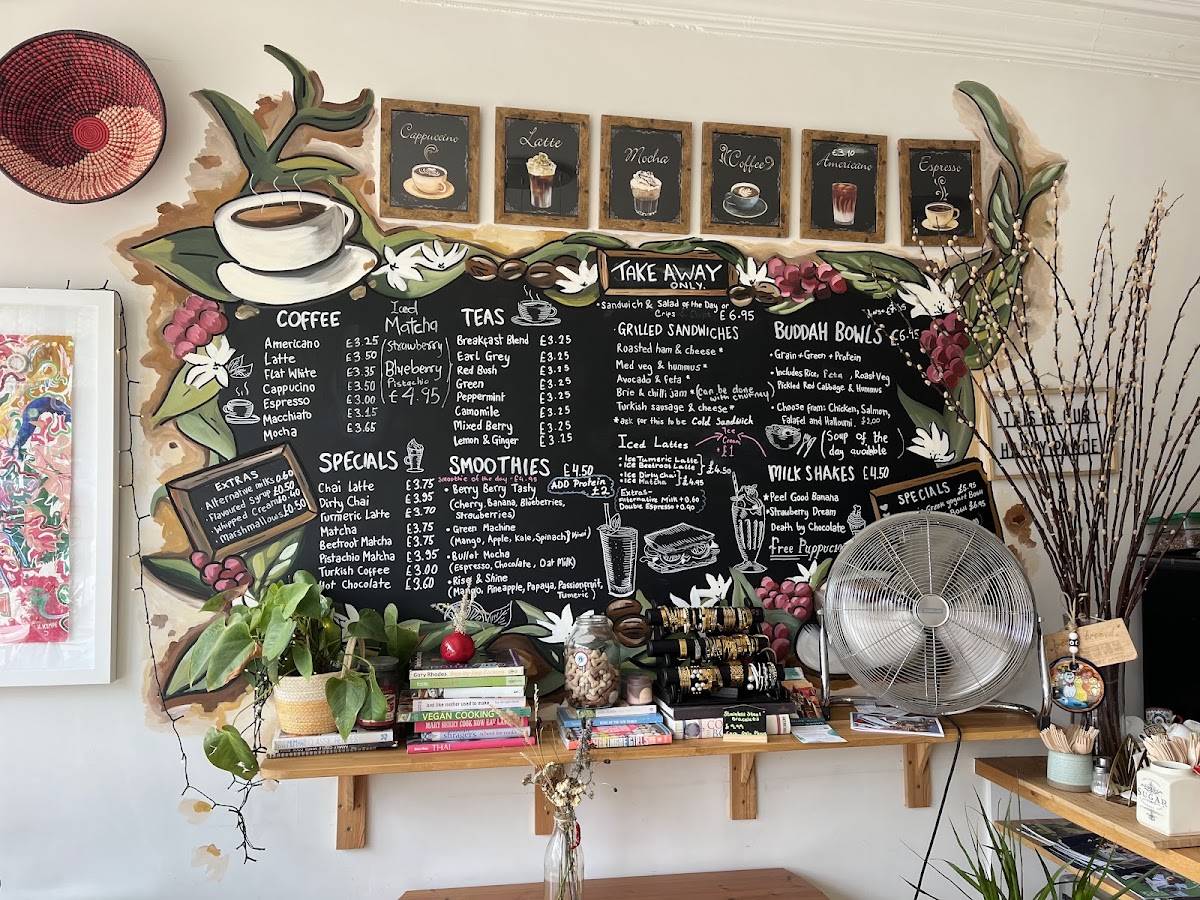 Cappuccino
Latte
Mocha
Coffee
£3.10
Americano
Espresso
TAKE AWAY
ONLY.
COFFEE
Americano £3.25
Latte £3.50
Flat White £3.35
Cappucino £3.50
Espresso £3.00
Macchiato £3.15
Mocha £3.65
Iced
Matcha
Strawberry
Blueberry
Pistachio
£4.95
TEAS
Breakfast Blend £3.25
Earl Grey £3.25
Red Bush £3.25
Green £3.25
Peppermint £3.25
Camomile £3.25
Mixed Berry £3.25
Lemon & Ginger £3.25
• Sandwich & Salad of the Day or
Crips £6.95
• GRILLED SANDWICHES
Roasted ham & cheese *
Med veg & hummus *
Avocado & feta *
Brie & chilli jam * (can be done
with chutney)
Turkish sausage & cheese *
* ask for this to be Cold Sandwich
BUDDAH BOWL'S £6.95
• Grain + Green + Protein
• Includes Rice, Feta, Roast Veg
Pickled Red Cabbage & Hummus
• Choose from: Chicken, Salmon,
Falafel and Halloumi, £2.00
(Soup of the
day available)
EXTRAS
• Alternative milks 0.60
• Flavoured Syrup £0.50
• Whipped Cream £0.40
• Marshmallows £0.50
SPECIALS
Chai Latte £3.75
Dirty Chai £3.95
Turmeric Latte £3.70
Matcha £3.75
Beetroot Matcha £3.75
Pistachio Matcha £3.95
Turkish Coffee £3.00
Hot Chocolate £3.60
SMOOTHIES £4.50
Smoothie of the day - £4.95
ADD Protein
£2
• Berry Berry Tasty
(Cherry, Banana, Blueberries,
Strawberries)
• Green Machine
(Mango, Apple, Kale, Spinach, Kiwi)
• Bullet Mocha
(Espresso, Chocolate, Oat Milk)
• Rise & Shine
(Mango, Pineapple, Papaya, Passionfruit,
Turmeric)
Iced Lattes
Ice
Cream
£1
• Ice Turmeric Latte
• Ice Beetroot Latte
• Ice Dirty Chai
• Ice Matcha
£4.50
£4.95
Extras-
alternative Milk +0.60
Double Espresso +0.90
MILK SHAKES £4.50
• Peel Good Banana
• Strawberry Dream
Death by Chocolate
Free Puppucc
SPECIALS £5.95
Greek yogurt Bowl
Bowl £6.95
HAPPY
Gary Rhodes
just like mother used to make
VEGAN COOKING
MARY BERRY COOK NOW EAT LATER
THAI
Stainless Steel
Bracelets
£9.99
SUGAR